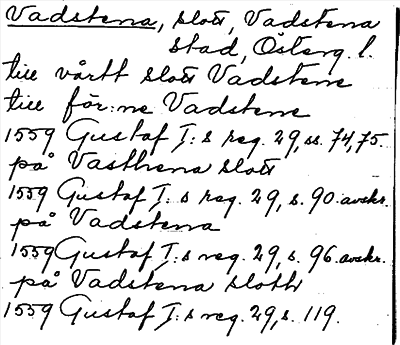 Vadstena, slott, Vadstena
stad, Österg. l.
till vårtt slott Vadstene
till för:ne Vadstene
1559 Gustaf I:s reg. 29, ss. 74, 75.
på Vasthena slott
1559 Gustaf I:s reg. 29, s. 90. avskr.
på Vadstena
1559 Gustaf I:s reg. 29, s. 96. avskr.
på Vadstena sloth
1559 Gustaf I:s reg. 29, s. 119.